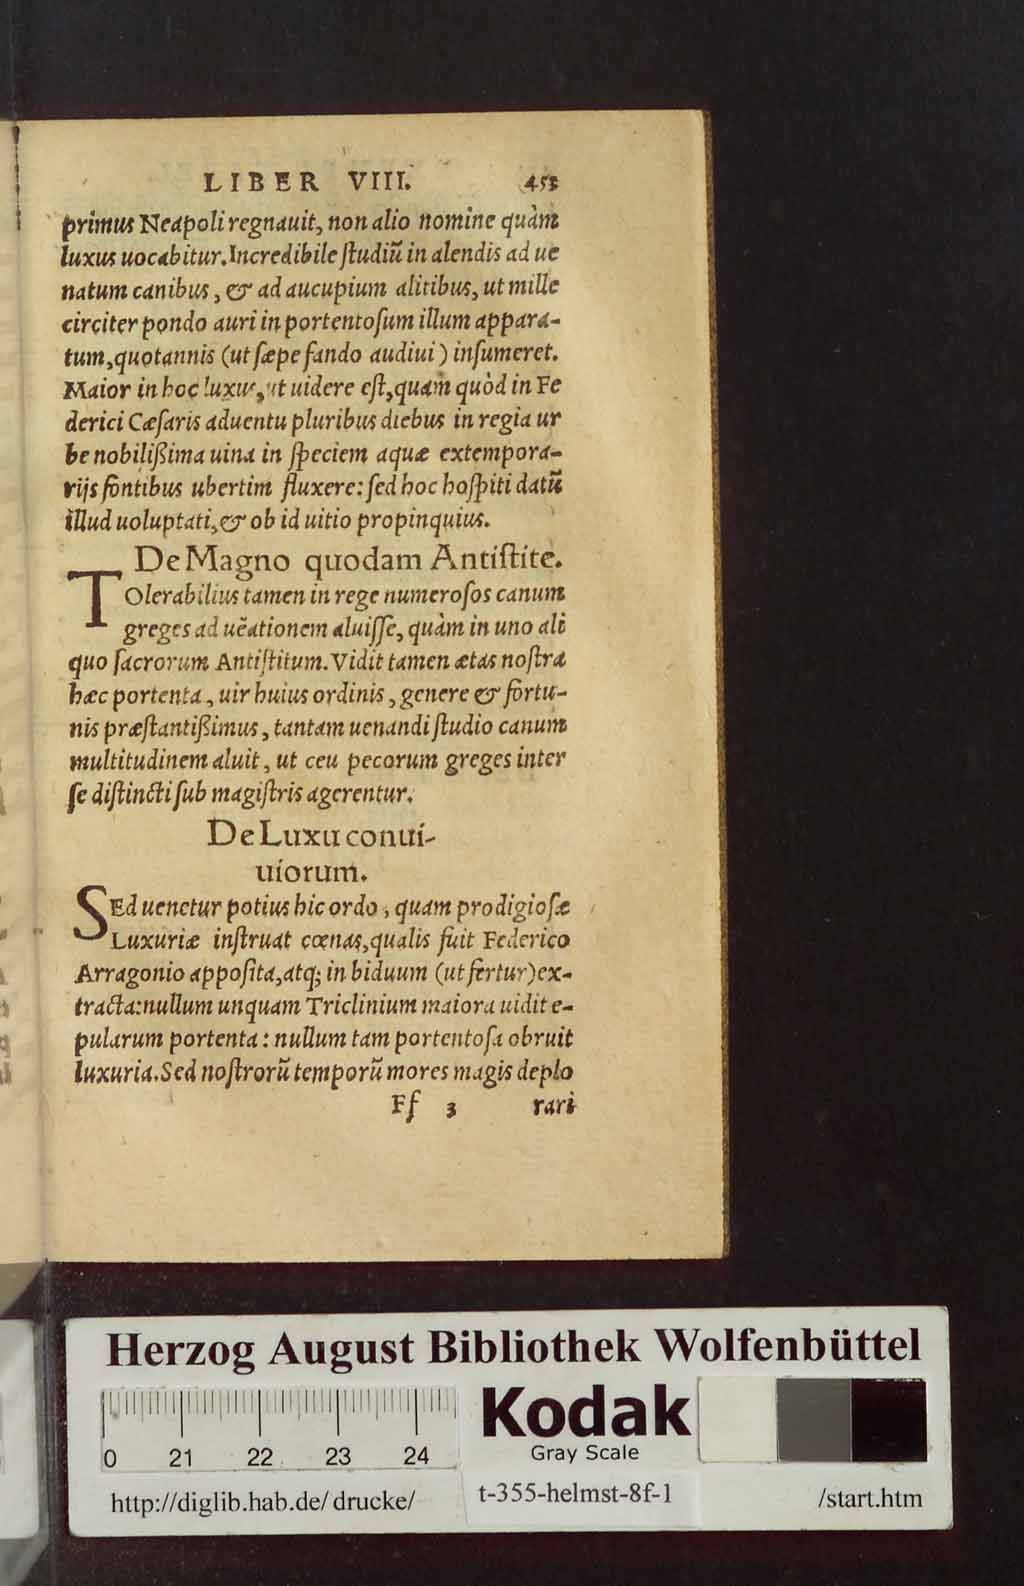 LIBER VIII. 453
primus Neapoli regnauit, non alio nomine quàm
luxus uocabitur. Incredibile ſtudiũ in alendis ad ue
natum canibus, & ad aucupium alitibus, ut mille
circiter pondo auri in portentoſum illum appara-
tum, quotannis (ut ſæpe fando audiui) inſumeret.
Maior in hoc luxus, ut uidere eſt, quàm quòd in Fe
derici Cæſaris aduentu pluribus diebus in regia ur
be nobilißima uina in ſpeciem aquæ extempora-
rijs fontibus ubertim fluxere: ſed hoc hoſpiti datũ
illud uoluptati, & ob id uitio propinquius.
De Magno quodam Antiſtite.
TOlerabilius tamen in rege numeroſos canum
greges ad uẽationem aluiſſe, quàm in uno ali
quo ſacrorum Antiſtitum. Vidit tamen ætas noſtra
hæc portenta, uir huius ordinis, genere & fortu-
nis præſtantißimus, tantam uenandi ſtudio canum
multitudinem aluit, ut ceu pecorum greges inter
ſe diſtincti ſub magiſtris agerentur.
De Luxu conui-
uiorum.
SEd uenetur potius hic ordo, quam prodigioſæ
Luxuriæ inſtruat cœnas, qualis fuit Federico
Arragonio appoſita, atq; in biduum (ut fertur) ex-
tracta: nullum unquam Triclinium maiora uidit e-
pularum portenta: nullum tam portentoſa obruit
luxuria. Sed noſtrorũ temporũ mores magis deplo
Ff 3 rari
Herzog August Bibliothek Wolfenbüttel
Kodak
Gray Scale
0 21 22 23 24
http://diglib.hab.de/drucke/ t-355-helmst-8f-1 /start.htm